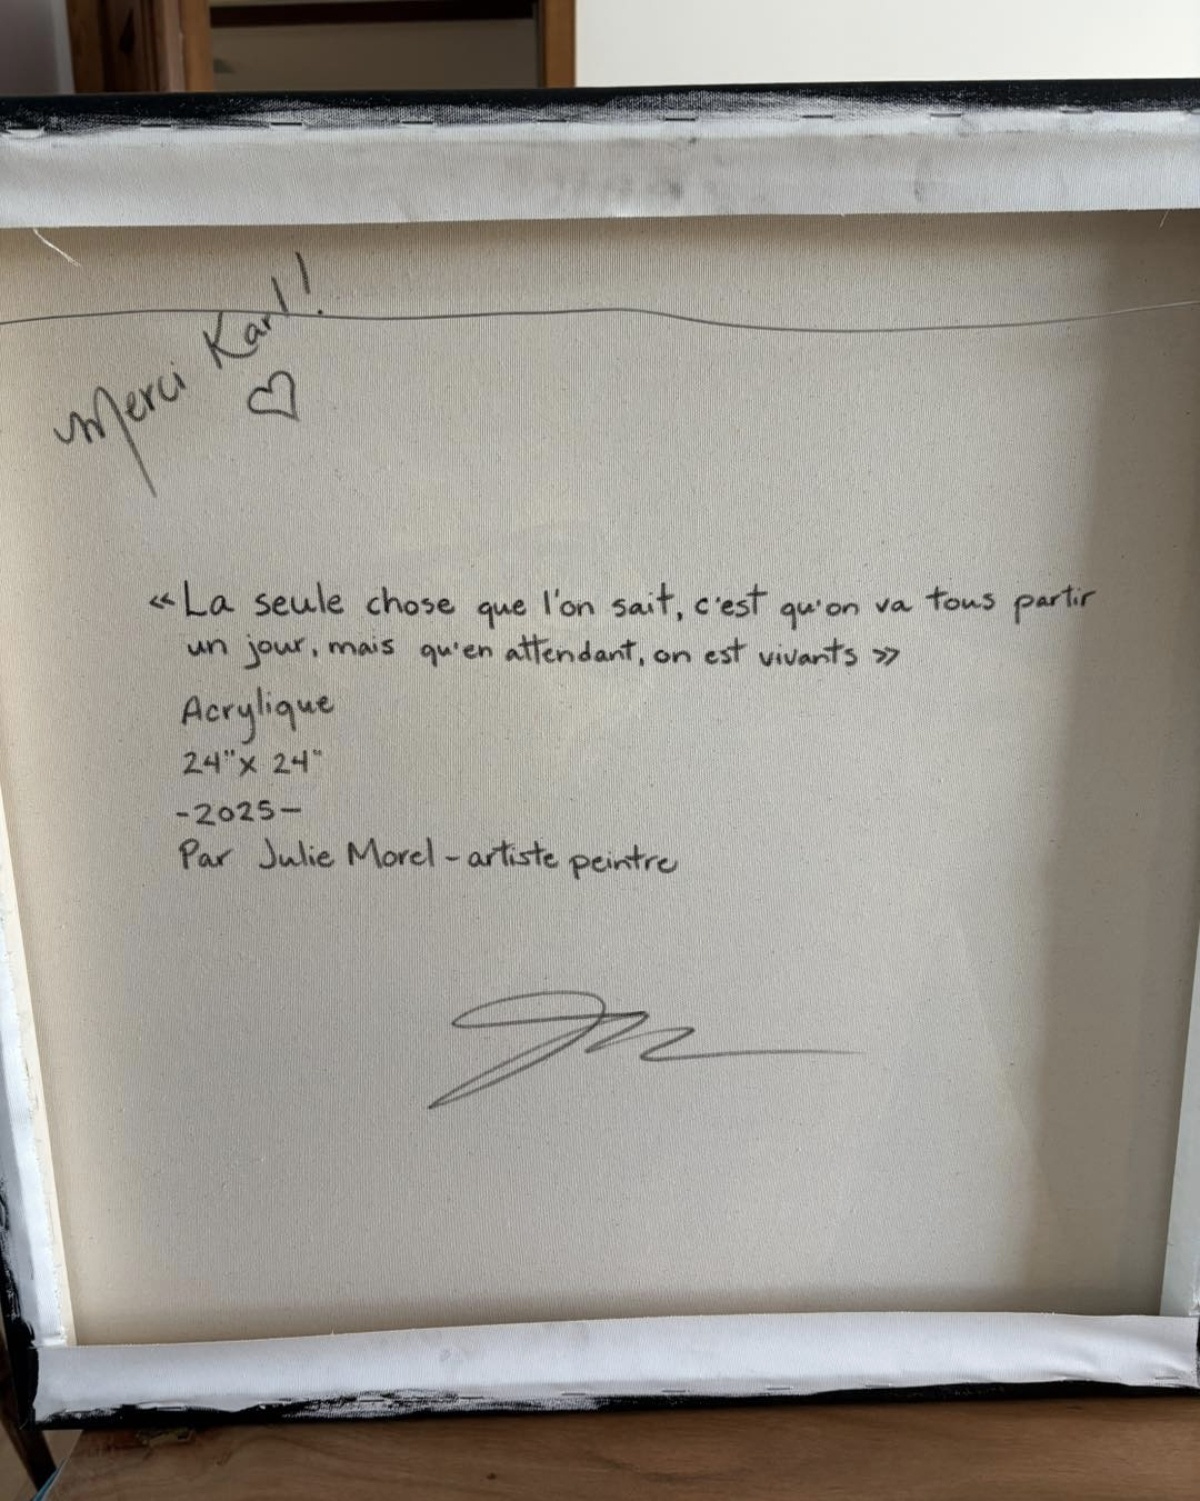 Merci Karl!
« La seule chose que l'on sait, c'est qu'on va tous partir
un jour, mais qu'en attendant, on est vivants »
Acrylique
24"x 24"
-2025-
Par Julie Morel - artiste peintre